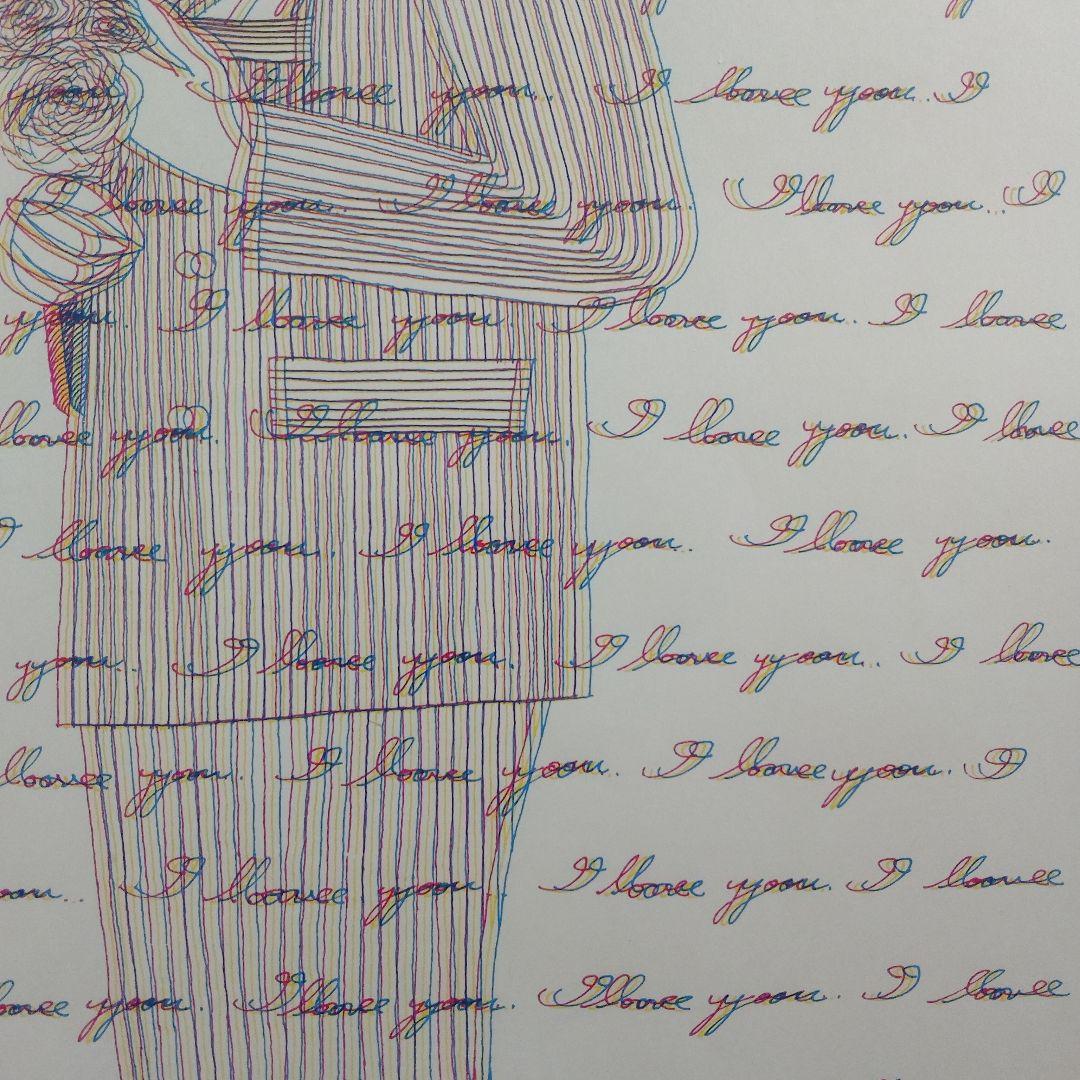 you. I love you. I love you. I
I love you. I love you. I love you. I
you. I love you. I love you. I love
love you. I love you. I love you. I love
I love you. I love you. I love you.
you. I love you. I love you. I love
love you. I love you. I love you. I
you. I love you. I love you. I love
love you. I love you. I love you. I love